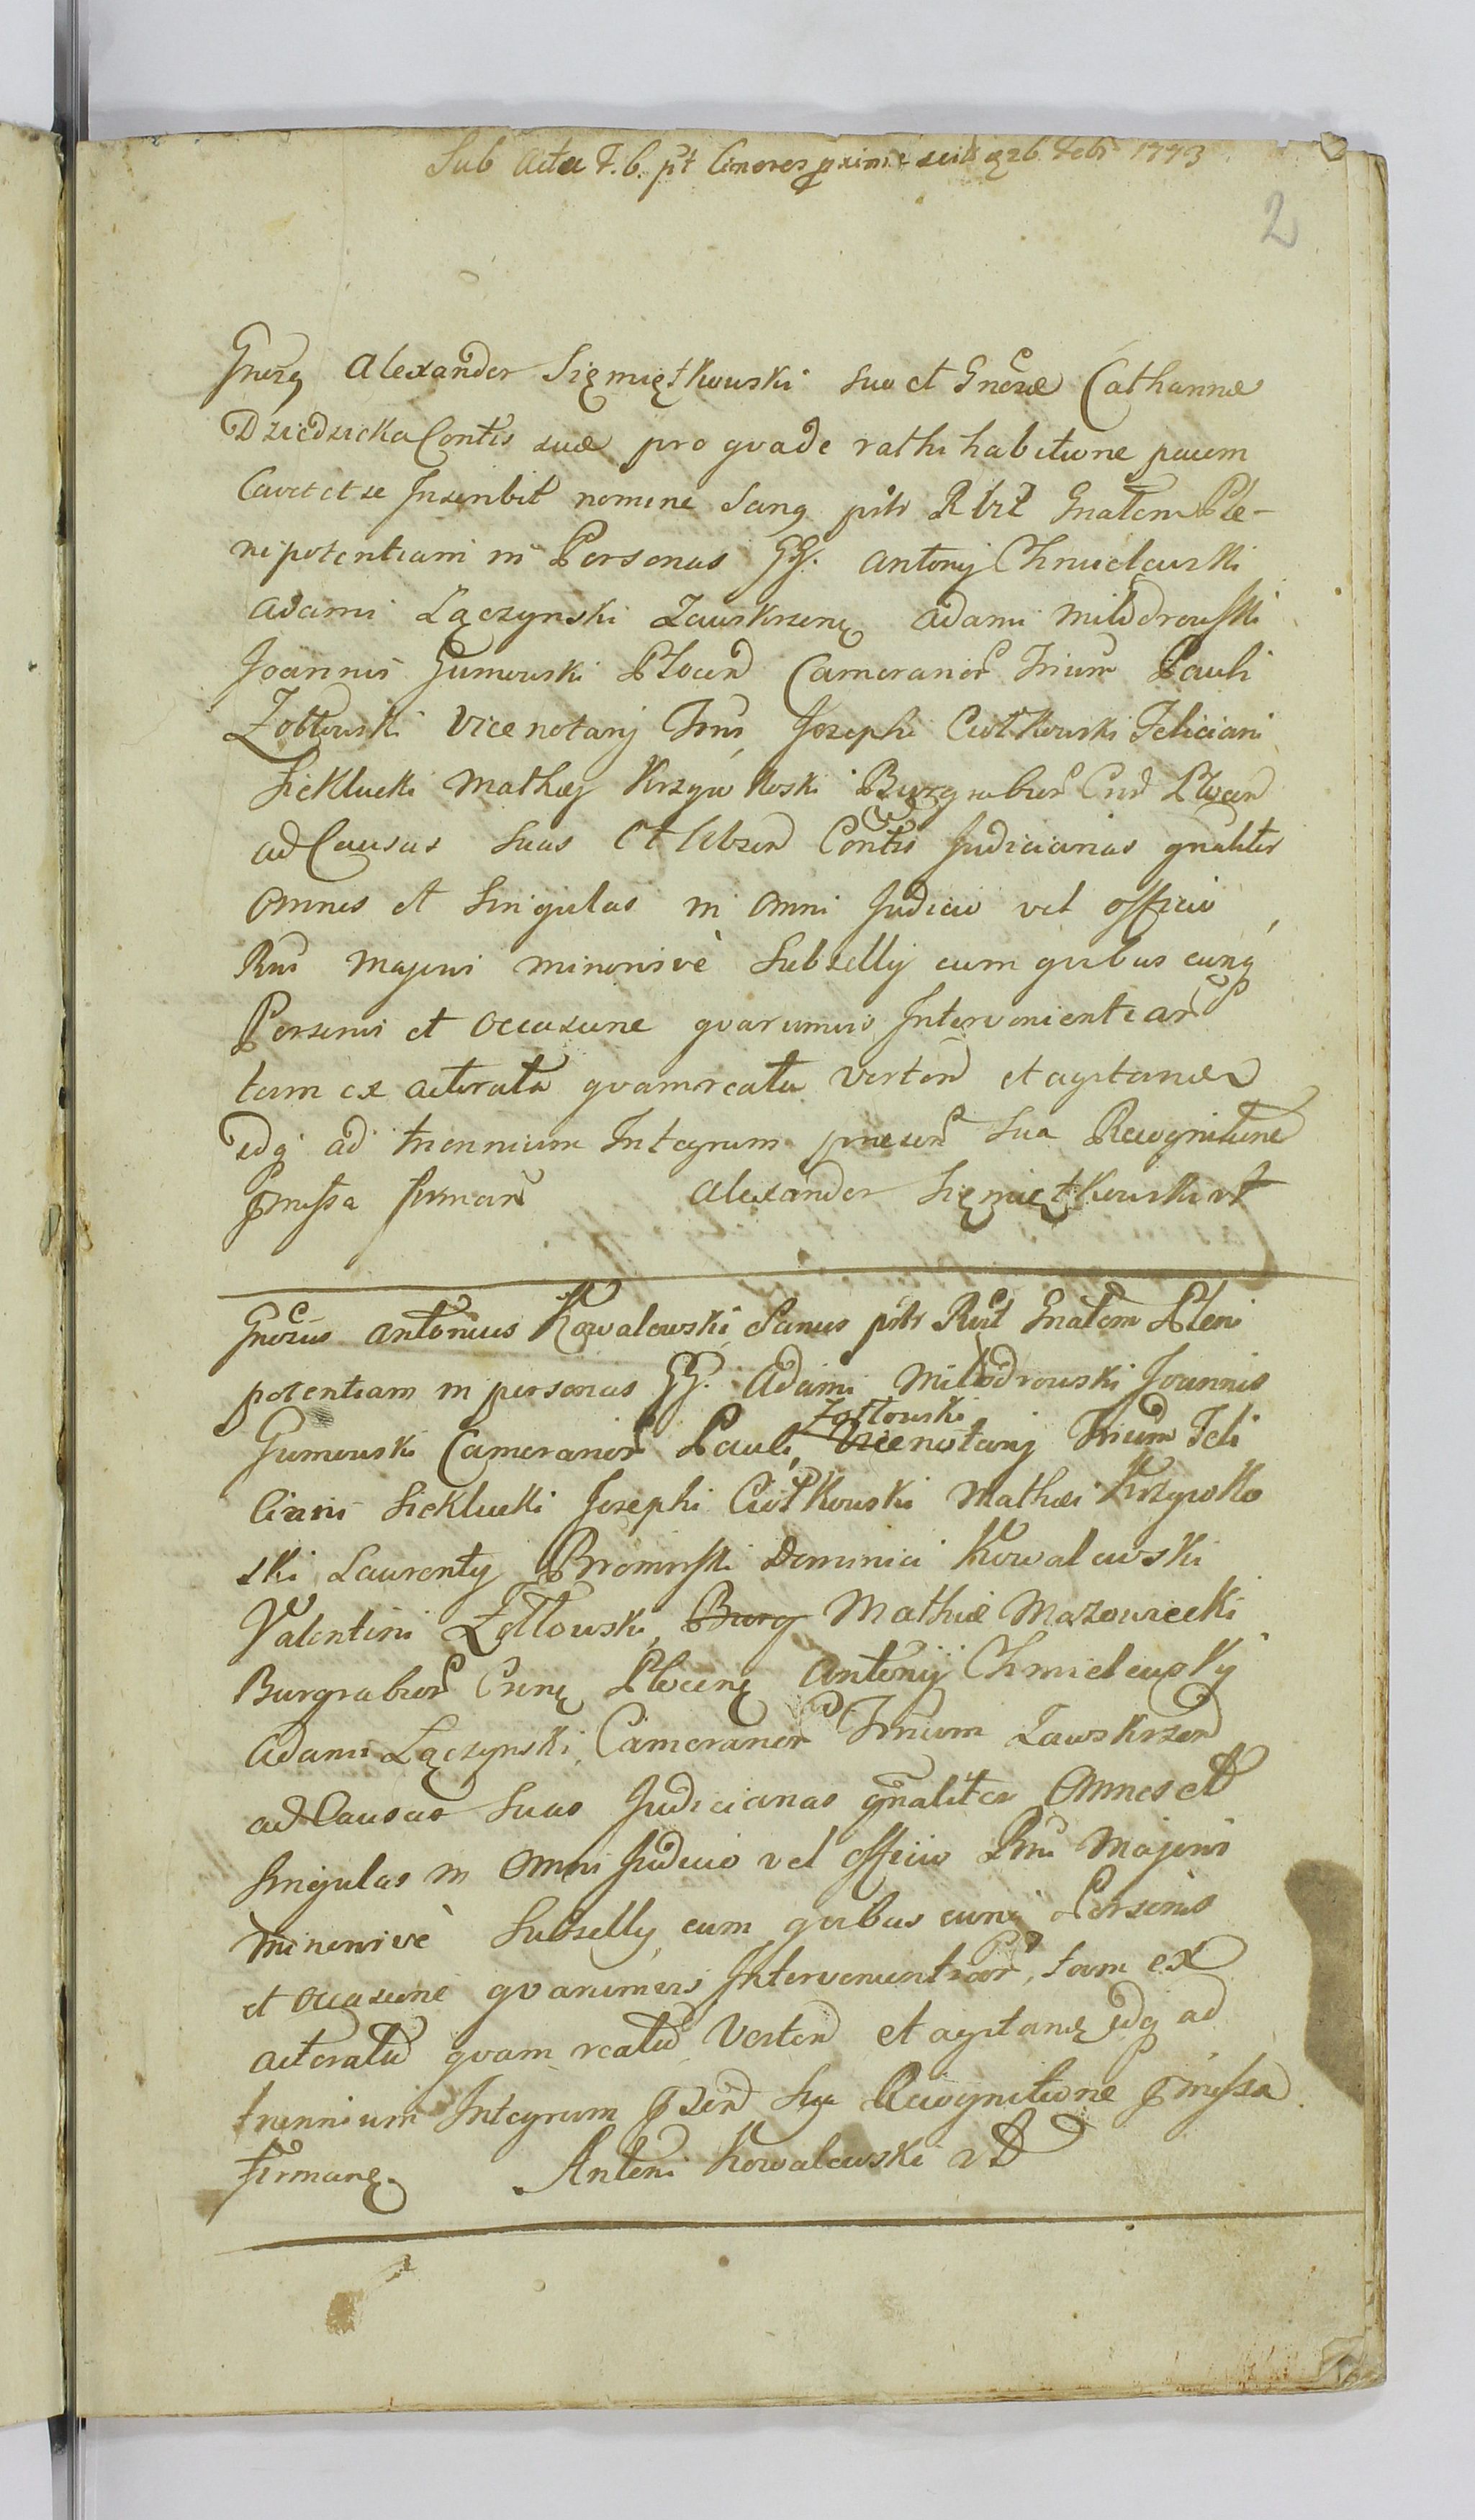 Sub Acta F. 6. pt Cineres pxime scil 26 Febr 1773
2
Gnosg Alexander Siemiętkowski suo et Gnosae Catharinae
Dziedzicka Contis suae pro qvade rathi habitione
Cavet et se Inscribit nomine Sang pits Rlvit Gnalem Ple-
nipotentiam in Personas GG. Antonij Chmielewski
Adami Łączynski Zawskrzenę Adami Milodrowski
Joannis Gumowski Plocen Cameranior Trium Pauli
Zołtowski Vicenotarij Trris Josephi Ciołkowski Feliciani
Siekłucki Mathaej Krzywkoski Burgrabior Cnd Plocen
ad Causas suas et Contis Judiciarias gnaliter
omnes et singulas in omni Judicio vel officio
Rni Majoris minorisve Subsellij cum qvibus cunq
Personis et occasione qvarumvis Intervenientiar
tam ex actoratu qvam reatu verten et agitandas
idq ad triennium Integrum praesen sua Recognitione
pmissa firman Alexander Siemiętkowski
Gnosus Antonius Kowalewski Sanus pits Rlvit Gnalem Pleni
potentiam in personas GG. Adami Milodrowski Joannis
Gumowski Cameranior Pauli Zołtowski Vicenotarij Trium Feli
ciani Siekłucki Josephi Ciołkowski Mathaei Krzywko
ski Laurentij Bromirski Dominici Kowalewski
Valentini Zołtowski, Burg Mathiae Mazowiecki
Burgrabior Crenę Plocenę Antonij Chmielewskij
Adami Łączynski, Cameranior Trrium Zawskrzen
ad Causas suas Judiciarias gnaliter omnes et
singulas in omni Judicio vel officio Rni Majoris
minorisve Subsellij cum qvibus cunq Personis
et occasione qvarumvis Intervenientiar, tam ex
actoratu qvam reatu Verten et agitandę idq ad
triennium Integrum psen sua Recognitione pmissa
firmanę. Antoni Kowalewski